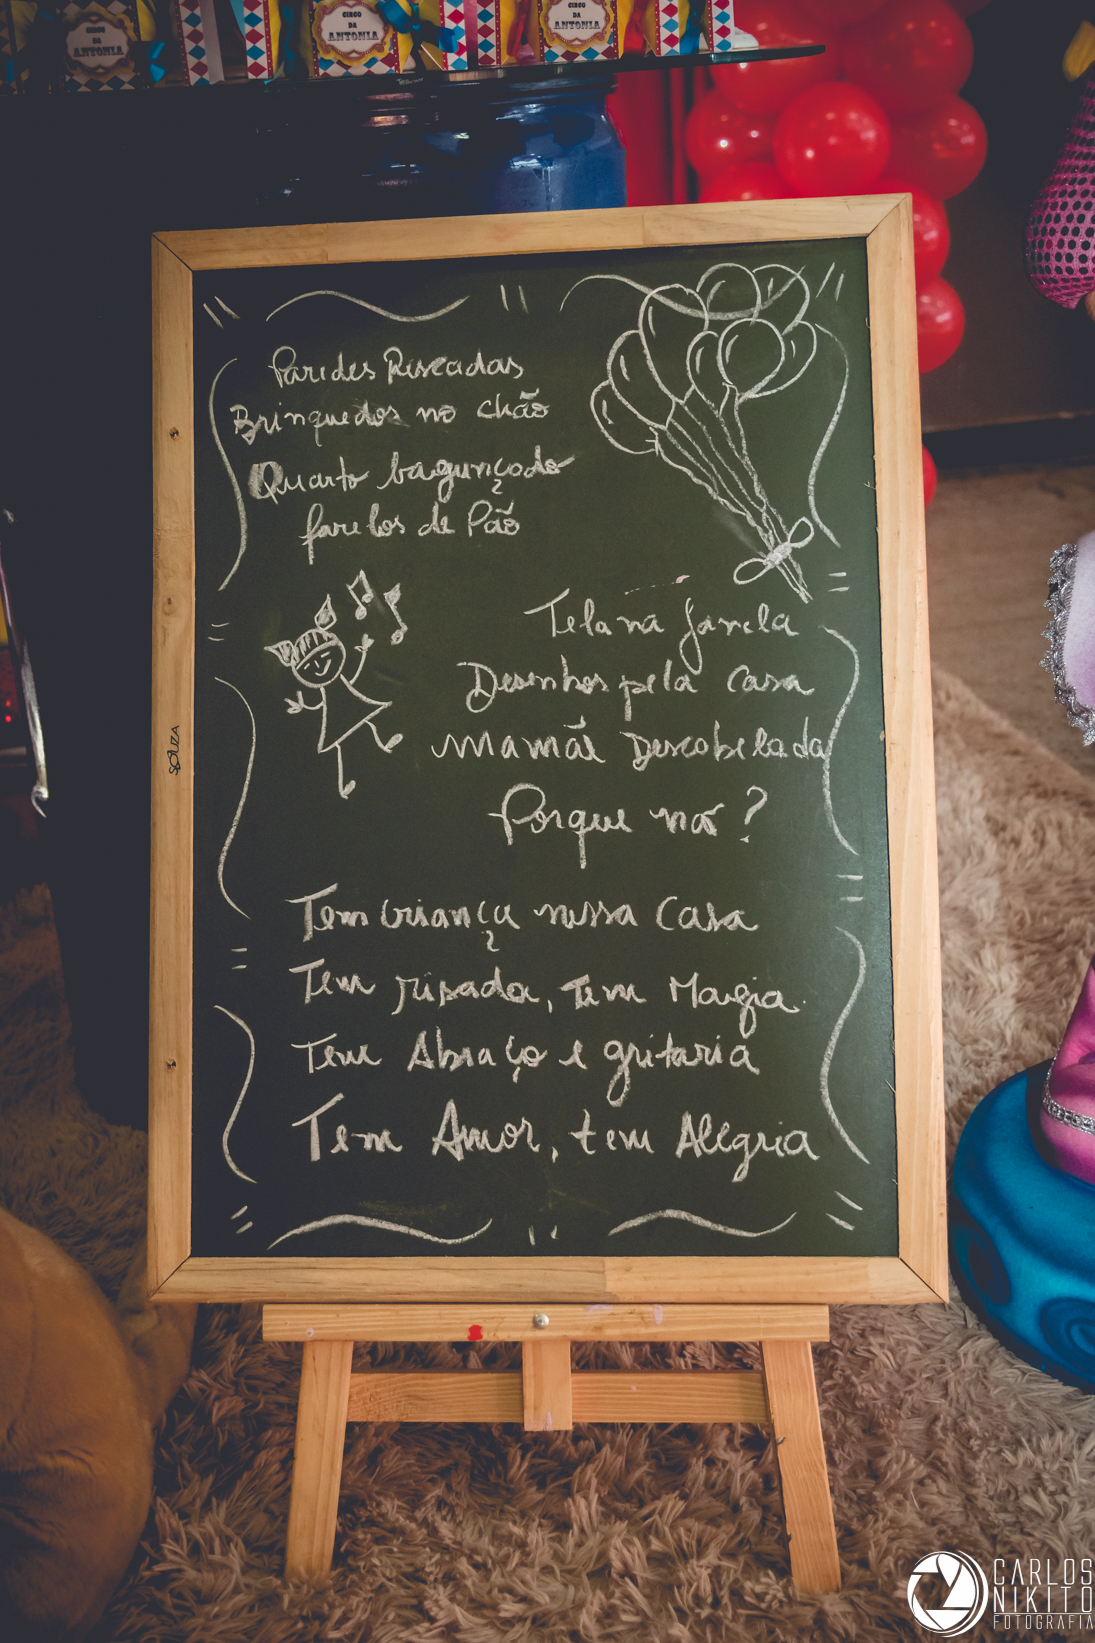 CIRCO
DA
ANTONIA
CIRCO
DA
ANTONIA
CIRCO
DA
ANTONIA
Parides Riscadas
Brinquedos no chão
Quarto bagunçado
farelos de Pão
Tela na janela
Desenhos pela casa
Mamãe Descabelada
Porque não?
Tem criança nessa Casa
Tem risada, Tem Magia.
Tem Abraço e gritaria
Tem Amor, tem Alegria
SOUZA
CARLOS
NIKITO
FOTOGRAFIA